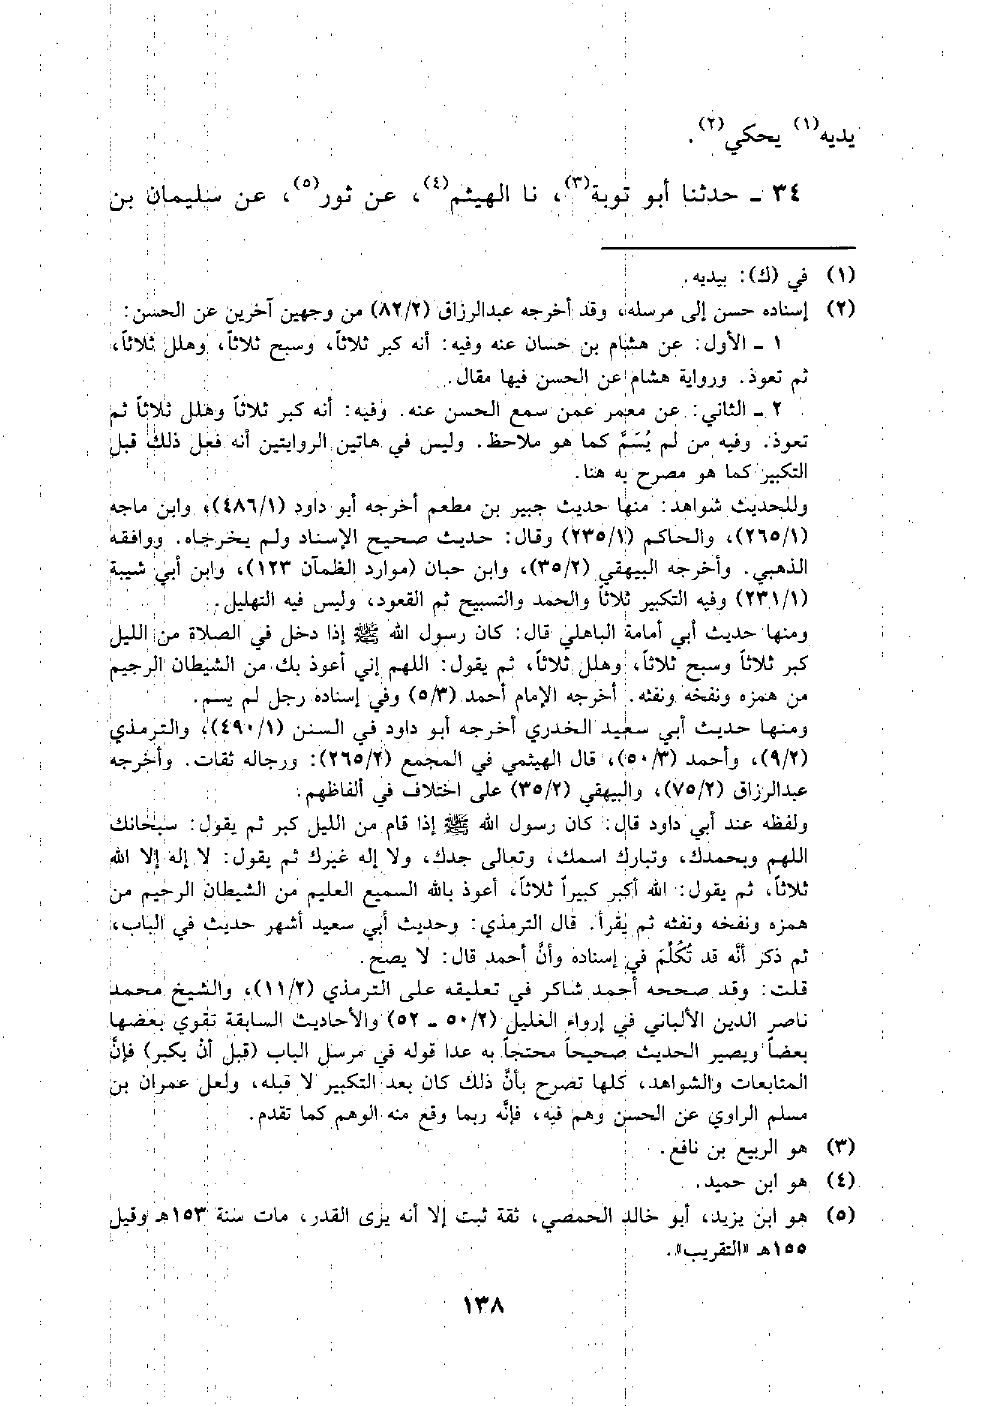 يديه(١) يحكي(٢).
٣٤ ـ حدثنا أبو توبة(٣)، نا الهيثم(٤)، عن ثور(٥)، عن سليمان بن
(١) في (ك): بيديه.
(٢) إسناده حسن إلى مرسله، وقد أخرجه عبدالرزاق (٨٢/٢) من وجهين آخرين عن الحسن:
١ ـ الأول: عن هشام بن حسان عنه وفيه: أنه كبر ثلاثاً، وسبح ثلاثاً، وهلل ثلاثاً،
ثم تعوذ. ورواية هشام عن الحسن فيها مقال.
٢ ـ الثاني: عن معمر عمن سمع الحسن عنه. وفيه: أنه كبر ثلاثاً وهلل ثلاثاً ثم
تعوذ. وفيه من لم يُسَمَّ كما هو ملاحظ. وليس في هاتين الروايتين أنه فعل ذلك قبل
التكبير كما هو مصرح به هنا.
وللحديث شواهد: منها حديث جبير بن مطعم أخرجه أبو داود (٤٨٦/١)، وابن ماجه
(٢٦٥/١)، والحاكم (٢٣٥/١) وقال: حديث صحيح الإسناد ولم يخرجاه. ووافقه
الذهبي. وأخرجه البيهقي (٣٥/٢)، وابن حبان (موارد الظمآن ١٢٣)، وابن أبي شيبة
(٢٣١/١) وفيه التكبير ثلاثاً والحمد والتسبيح ثم القعود، وليس فيه التهليل.
ومنها حديث أبي أمامة الباهلي قال: كان رسول الله ﷺ إذا دخل في الصلاة من الليل
كبر ثلاثاً وسبح ثلاثاً، وهلل ثلاثاً، ثم يقول: اللهم إني أعوذ بك من الشيطان الرجيم
من همزه ونفخه ونفثه. أخرجه الإمام أحمد (٥/٣) وفي إسناده رجل لم يسم.
ومنها حديث أبي سعيد الخدري أخرجه أبو داود في السنن (٤٩٠/١)، والترمذي
(٩/٢)، وأحمد (٥٠/٣)، قال الهيثمي في المجمع (٢٦٥/٢): ورجاله ثقات. وأخرجه
عبدالرزاق (٧٥/٢)، والبيهقي (٣٥/٢) على اختلاف في ألفاظهم.
ولفظه عند أبي داود قال: كان رسول الله ﷺ إذا قام من الليل كبر ثم يقول: سبحانك
اللهم وبحمدك، وتبارك اسمك، وتعالى جدك، ولا إله غيرك ثم يقول: لا إله إلا الله
ثلاثاً، ثم يقول: الله أكبر كبيراً ثلاثاً، أعوذ بالله السميع العليم من الشيطان الرحيم من
همزه ونفخه ونفثه ثم يقرأ. قال الترمذي: وحديث أبي سعيد أشهر حديث في الباب،
ثم ذكر أنَّه قد تُكُلِّمَ في إسناده وأنَّ أحمد قال: لا يصح.
قلت: وقد صححه أحمد شاكر في تعليقه على الترمذي (١١/٢)، والشيخ محمد
ناصر الدين الألباني في إرواء الغليل (٥٠/٢ ـ ٥٢) والأحاديث السابقة تقوي بعضها
بعضاً ويصير الحديث صحيحاً محتجاً به عدا قوله في مرسل الباب (قبل أنْ يكبر) فإنَّ
المتابعات والشواهد، كلها تصرح بأنَّ ذلك كان بعد التكبير لا قبله، ولعل عمران بن
مسلم الراوي عن الحسن وهم فيه، فإنَّه ربما وقع منه الوهم كما تقدم.
(٣) هو الربيع بن نافع.
(٤) هو ابن حميد.
(٥) هو ابن يزيد، أبو خالد الحمصي، ثقة ثبت إلا أنه يرى القدر، مات سنة ١٥٣هـ وقيل
١٥٥هـ «التقريب».
١٣٨